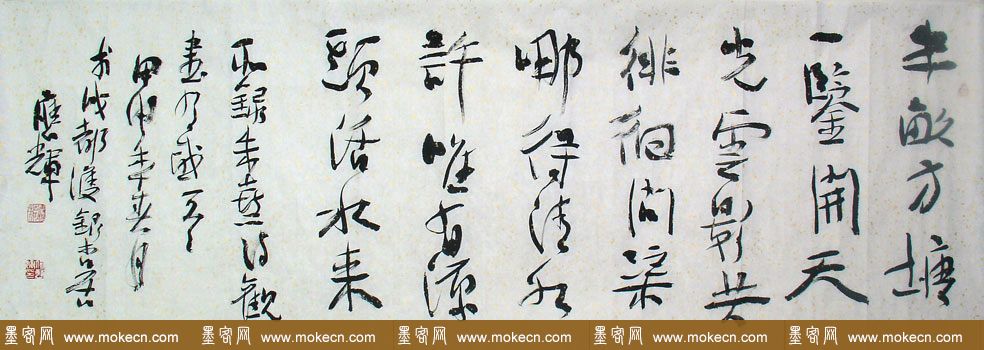 半畝方塘
一鑒開天
光雲影共
徘徊問渠
哪得清如
許唯有源
頭活水来
錄朱熹詩觀
書有感
甲申年春月
於成都
應輝
墨客网 www.mokecn.com 墨客网 www.mokecn.com 墨客网 www.mokecn.com 墨客网 www.mokecn.com 墨客网 www.mokecn.com